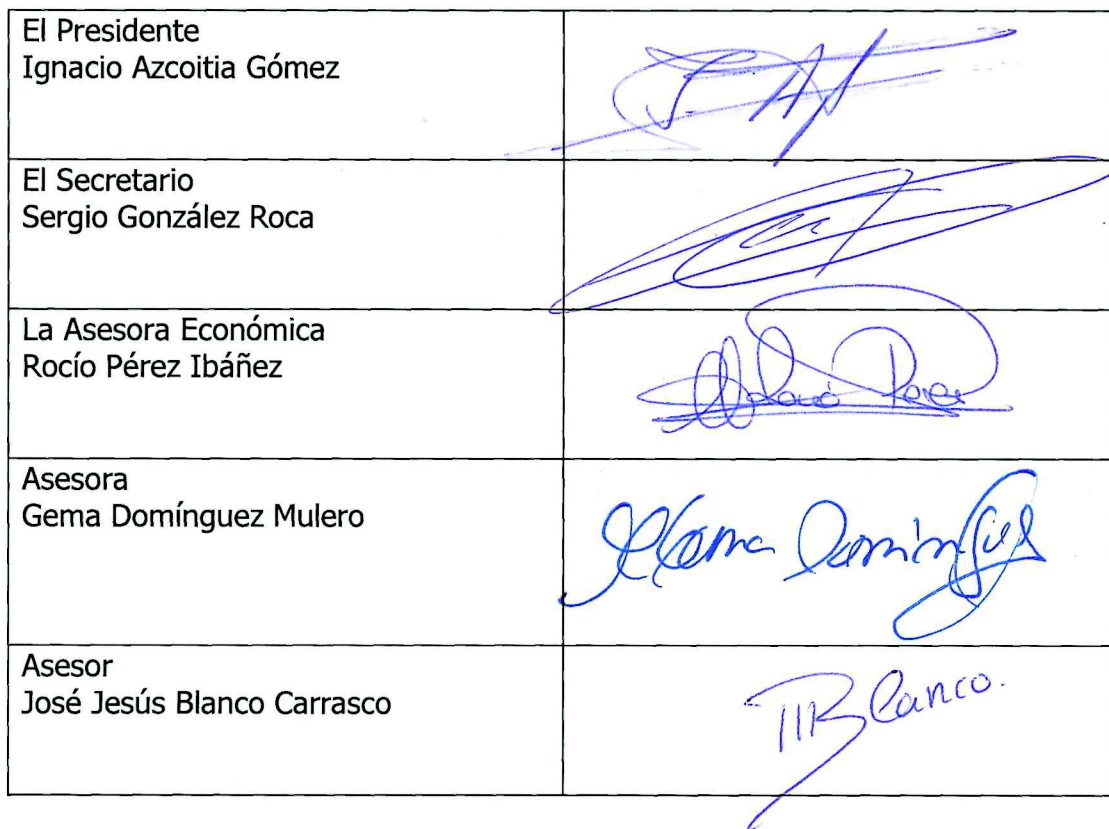 El Presidente
Ignacio Azcoitia Gómez
El Secretario
Sergio González Roca
La Asesora Económica
Rocío Pérez Ibáñez
Asesora
Gema Domínguez Mulero
Gema Domínguez
Asesor
José Jesús Blanco Carrasco
Blanco.